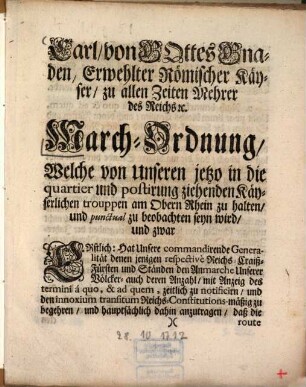 Carl/von GOttes Gna-
den/ Erwehlter Römischer Käy-
ser/ zu allen Zeiten Mehrer
des Reichs ꝛc.
March-Ordnung/
Welche von Unseren jetzo in die
quartier und postirung ziehenden Käy-
serlichen trouppen am Obern Rhein zu halten/
und punctual zu beobachten seyn wird/
und zwar
ERstlich: Hat Unsere commandirende Genera-
lität denen jenigen respectivè Reichs, Craiß-
Fürsten und Ständen den Anmarche Unserer
Völcker, auch deren Anzahl/ mit Anzeig des
termini á quo, & ad quem, zeitlich zu notificirn/ und
den innoxium transitum Reichs-Constitutions-mäßig zu
begehren/ und hauptsächlich dahin anzutragen/ daß die
X
route